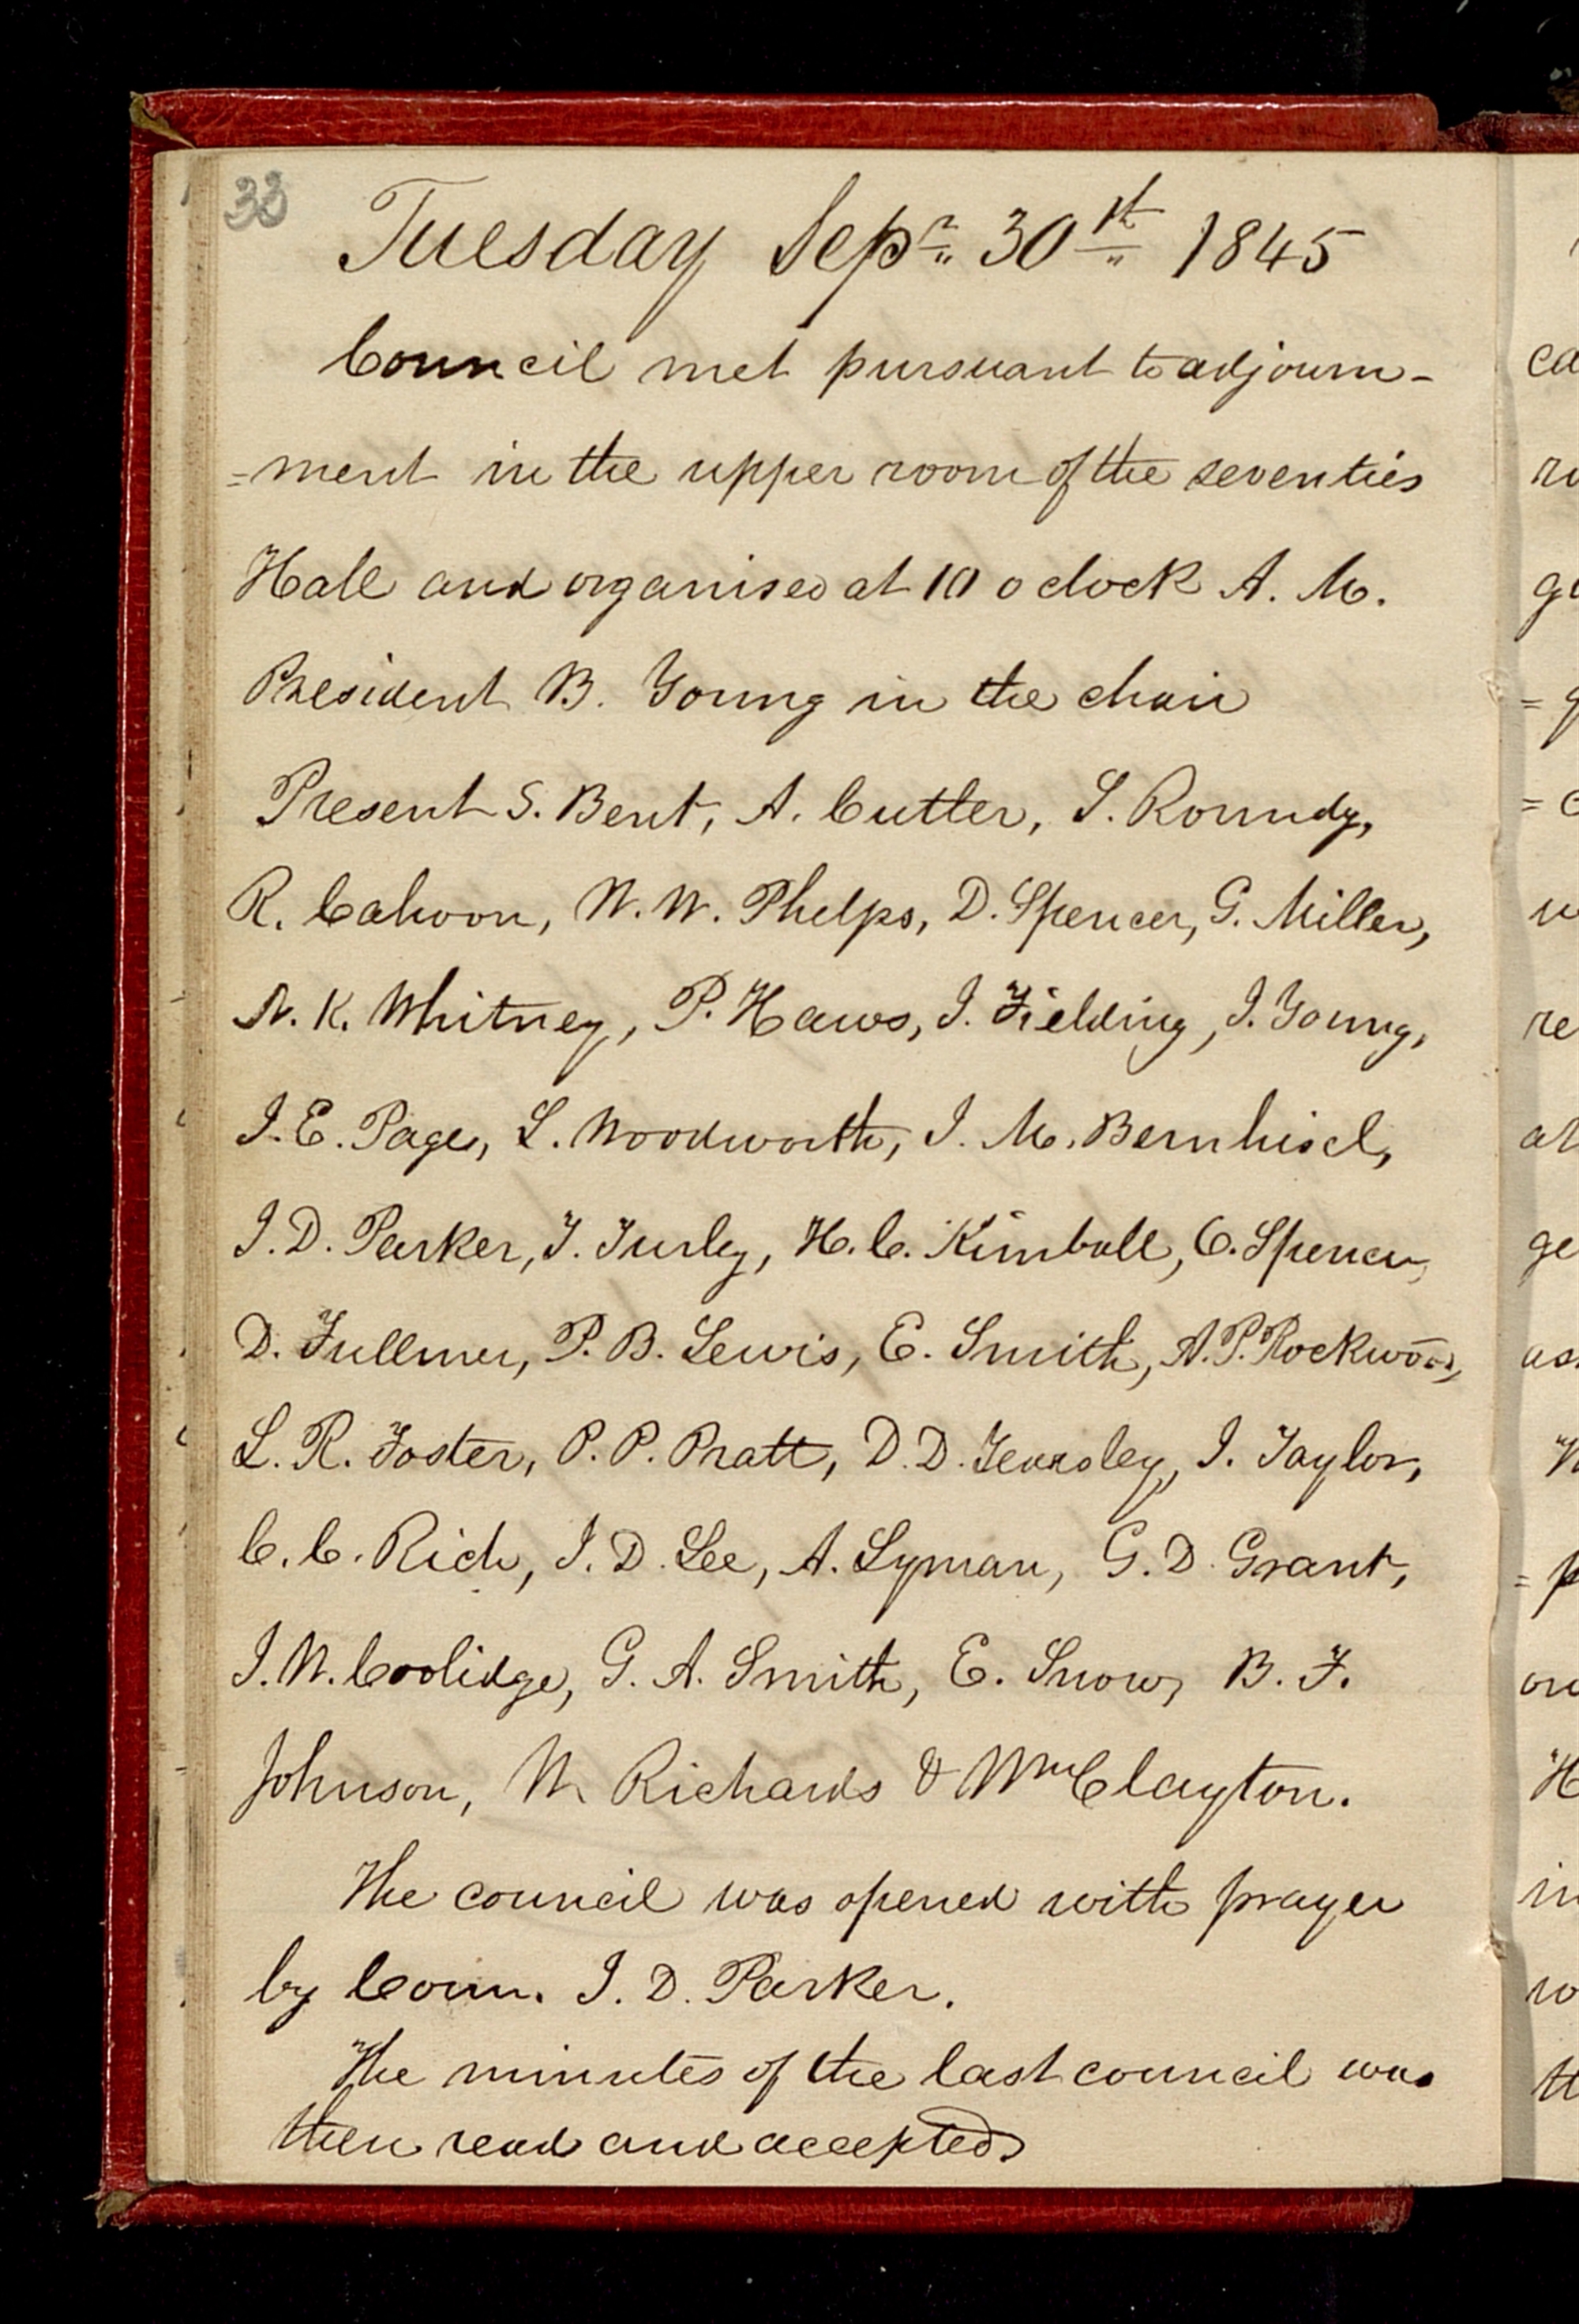 33
Tuesday Sepr. 30th 1845
Council met pursuant to adjourn-
=ment in the upper room of the seventies
Hall and organised at 10 o clock A. M.
President B. Young in the chair
Present S. Bent, A. Cutler, S. Roundy,
R. Cahoon, W. W. Phelps, D. Spencer, G. Miller,
N. K. Whitney, P. Haws, J. Fielding, J. Young,
J. E. Page, L. Woodworth, J. M. Bernhisel,
J. D. Parker, T. Turley, H. C. Kimball, O. Spencer,
D. Fullmer, P. B. Lewis, E. Smith, A. P. Rockwood,
L. R. Foster, P. P. Pratt, D. D. Yearsley, J. Taylor,
C. C. Rich, J. D. Lee, A. Lyman, G. D. Grant,
J. W. Coolidge, G. A. Smith, E. Snow, B. F.
Johnson, W. Richards & Wm Clayton.
The council was opened with prayer
by Coun. J. D. Parker.
The minutes of the last council was
then read and accepted